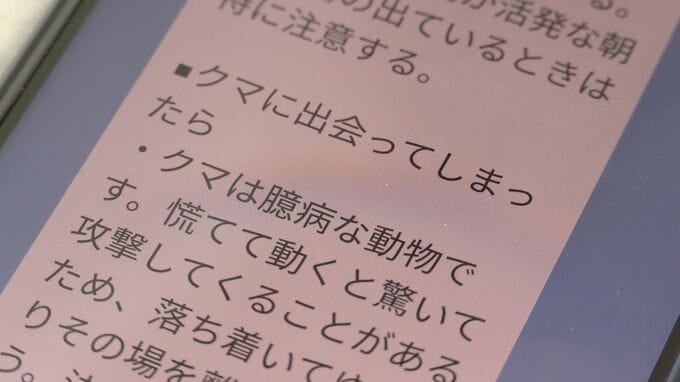 が活発な朝
の出ているときは
特に注意する。
■クマに出会ってしまっ
たら
・クマは臆病な動物で
す。慌てて動くと驚いて
攻撃してくることがある
ため、落ち着いてゆ
りその場を離
う。